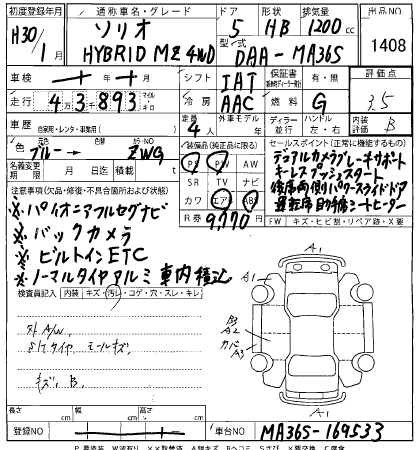 初度登録年月 通称車名・グレード ドア 形状 排気量 出品NO
H30/1 ソリオ 5 HB 1200cc 1408
HYBRID MZ 4WD 型式 DAA-MA36S
車検 年 月 シフト IAT 保証書 有・無 評価点
走行 43千893 マイル キロ 冷房 AAC 燃料 G 3.5
車歴 自家用・レンタ・事業用 定員 4人 外車モデル年 ディーラー 並行 ハンドル 左・右 内装 B
色 ブルー→ カラーNO ZWG 装備品(純正品に限る) セールスポイント(正常に機能するもの)
名義変更期限 月 日迄 積載 t PS PW AW デュアルカメラブレーキサポート
注意事項(欠品・修復・不具合箇所および状態) SR TV ナビ キーレスプッシュスタート
※パイオニアフルセグナビ カワ エア AB 後席両側パワースライドドア
※バックカメラ R券 9,770 運転席助手席シートヒーター
※ビルトインETC FW キズ・ヒビ割・リペア跡・X要
※ノーマルタイヤアルミ車内積込
検査員記入 内装 キズ・汚レ・コゲ・穴・スレ・キレ
A1
A1
外A/W
A2
タイヤ モールキズ
カバー A3
キズ、B
A1
長さ cm 幅 cm 高さ cm
登録NO 車台NO MA36S-169533